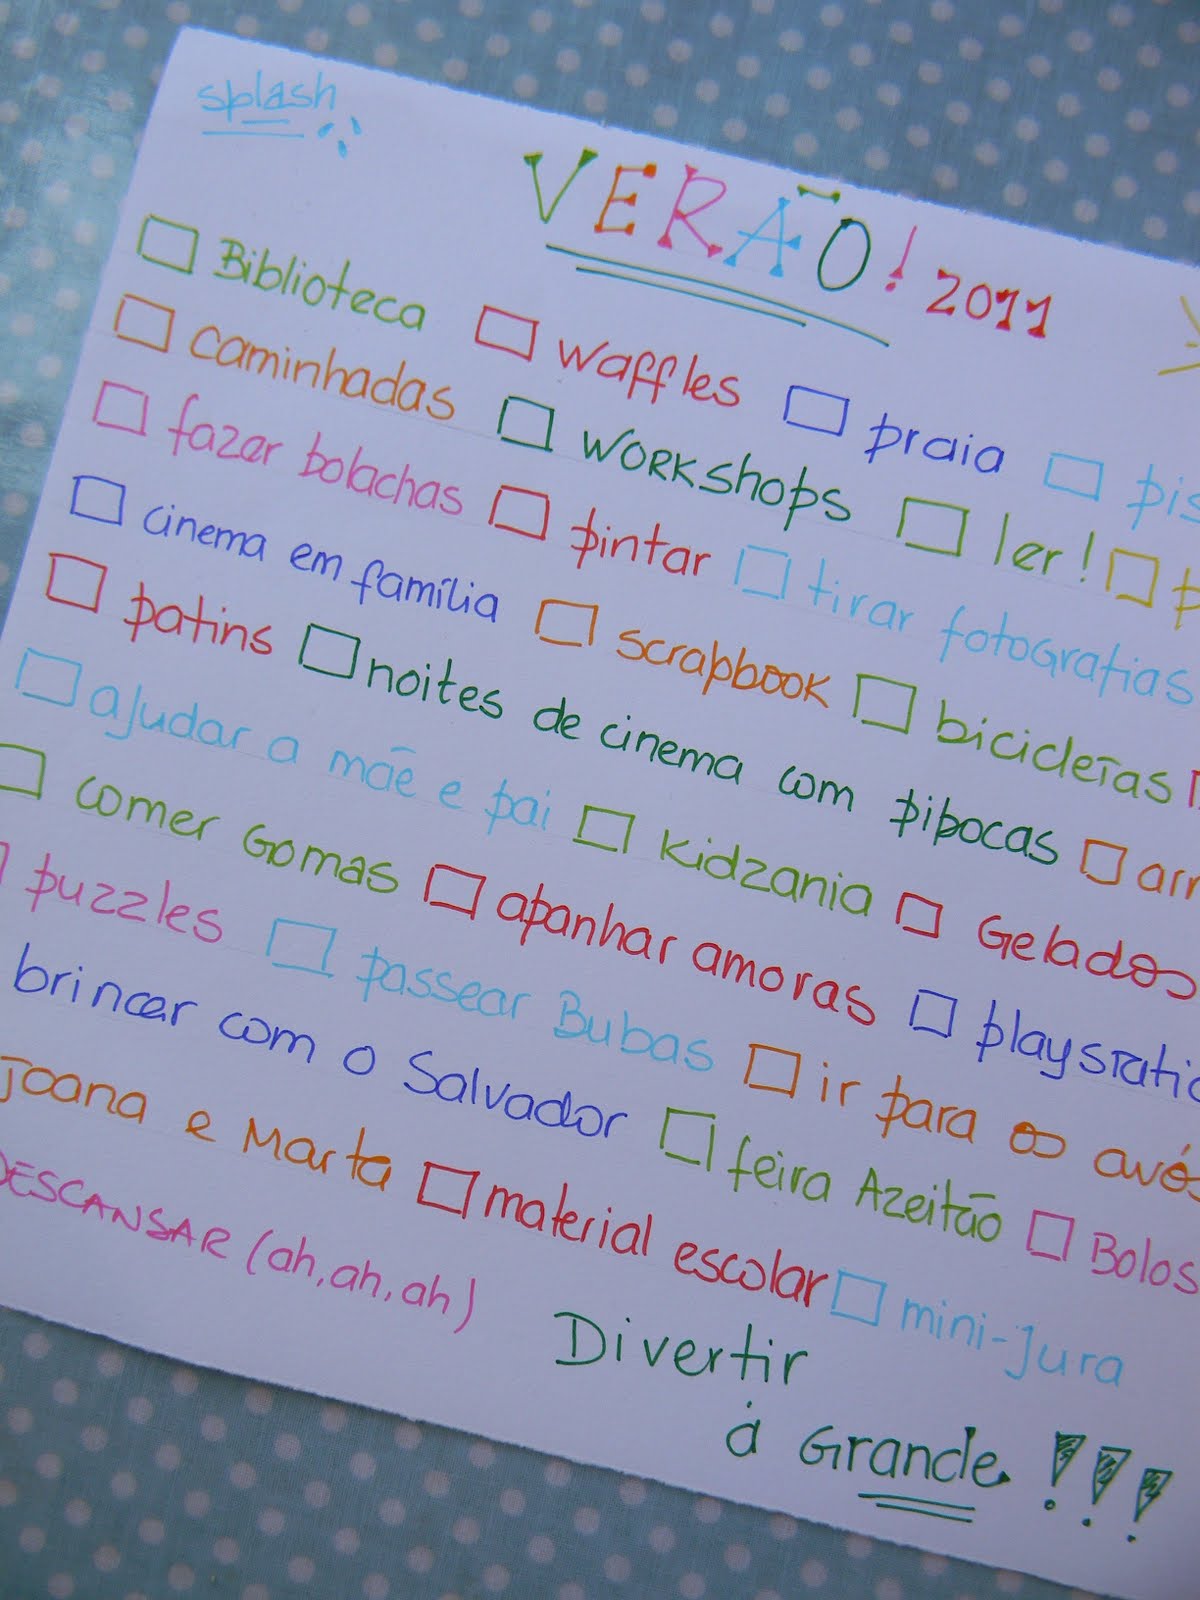 splash
VERÃO! 2011
☐ Biblioteca ☐ waffles ☐ praia ☐
☐ caminhadas ☐ WORKShops ☐ ler! ☐
☐ fazer bolachas ☐ pintar ☐ tirar fotografias
☐ cinema em família ☐ scrapbook ☐ bicicletas
☐ patins ☐ noites de cinema com pipocas ☐
☐ ajudar a mãe e pai ☐ kidzania ☐ Gelados
☐ comer Gomas ☐ apanhar amoras ☐
puzzles ☐ passear Bubas ☐ ir para os avós
brincar com o Salvador ☐ feira Azeitão ☐ Bolos
Joana e Marta ☐ material escolar ☐ mini-jura
DESCANSAR (ah, ah, ah)
Divertir
à Grande!!!